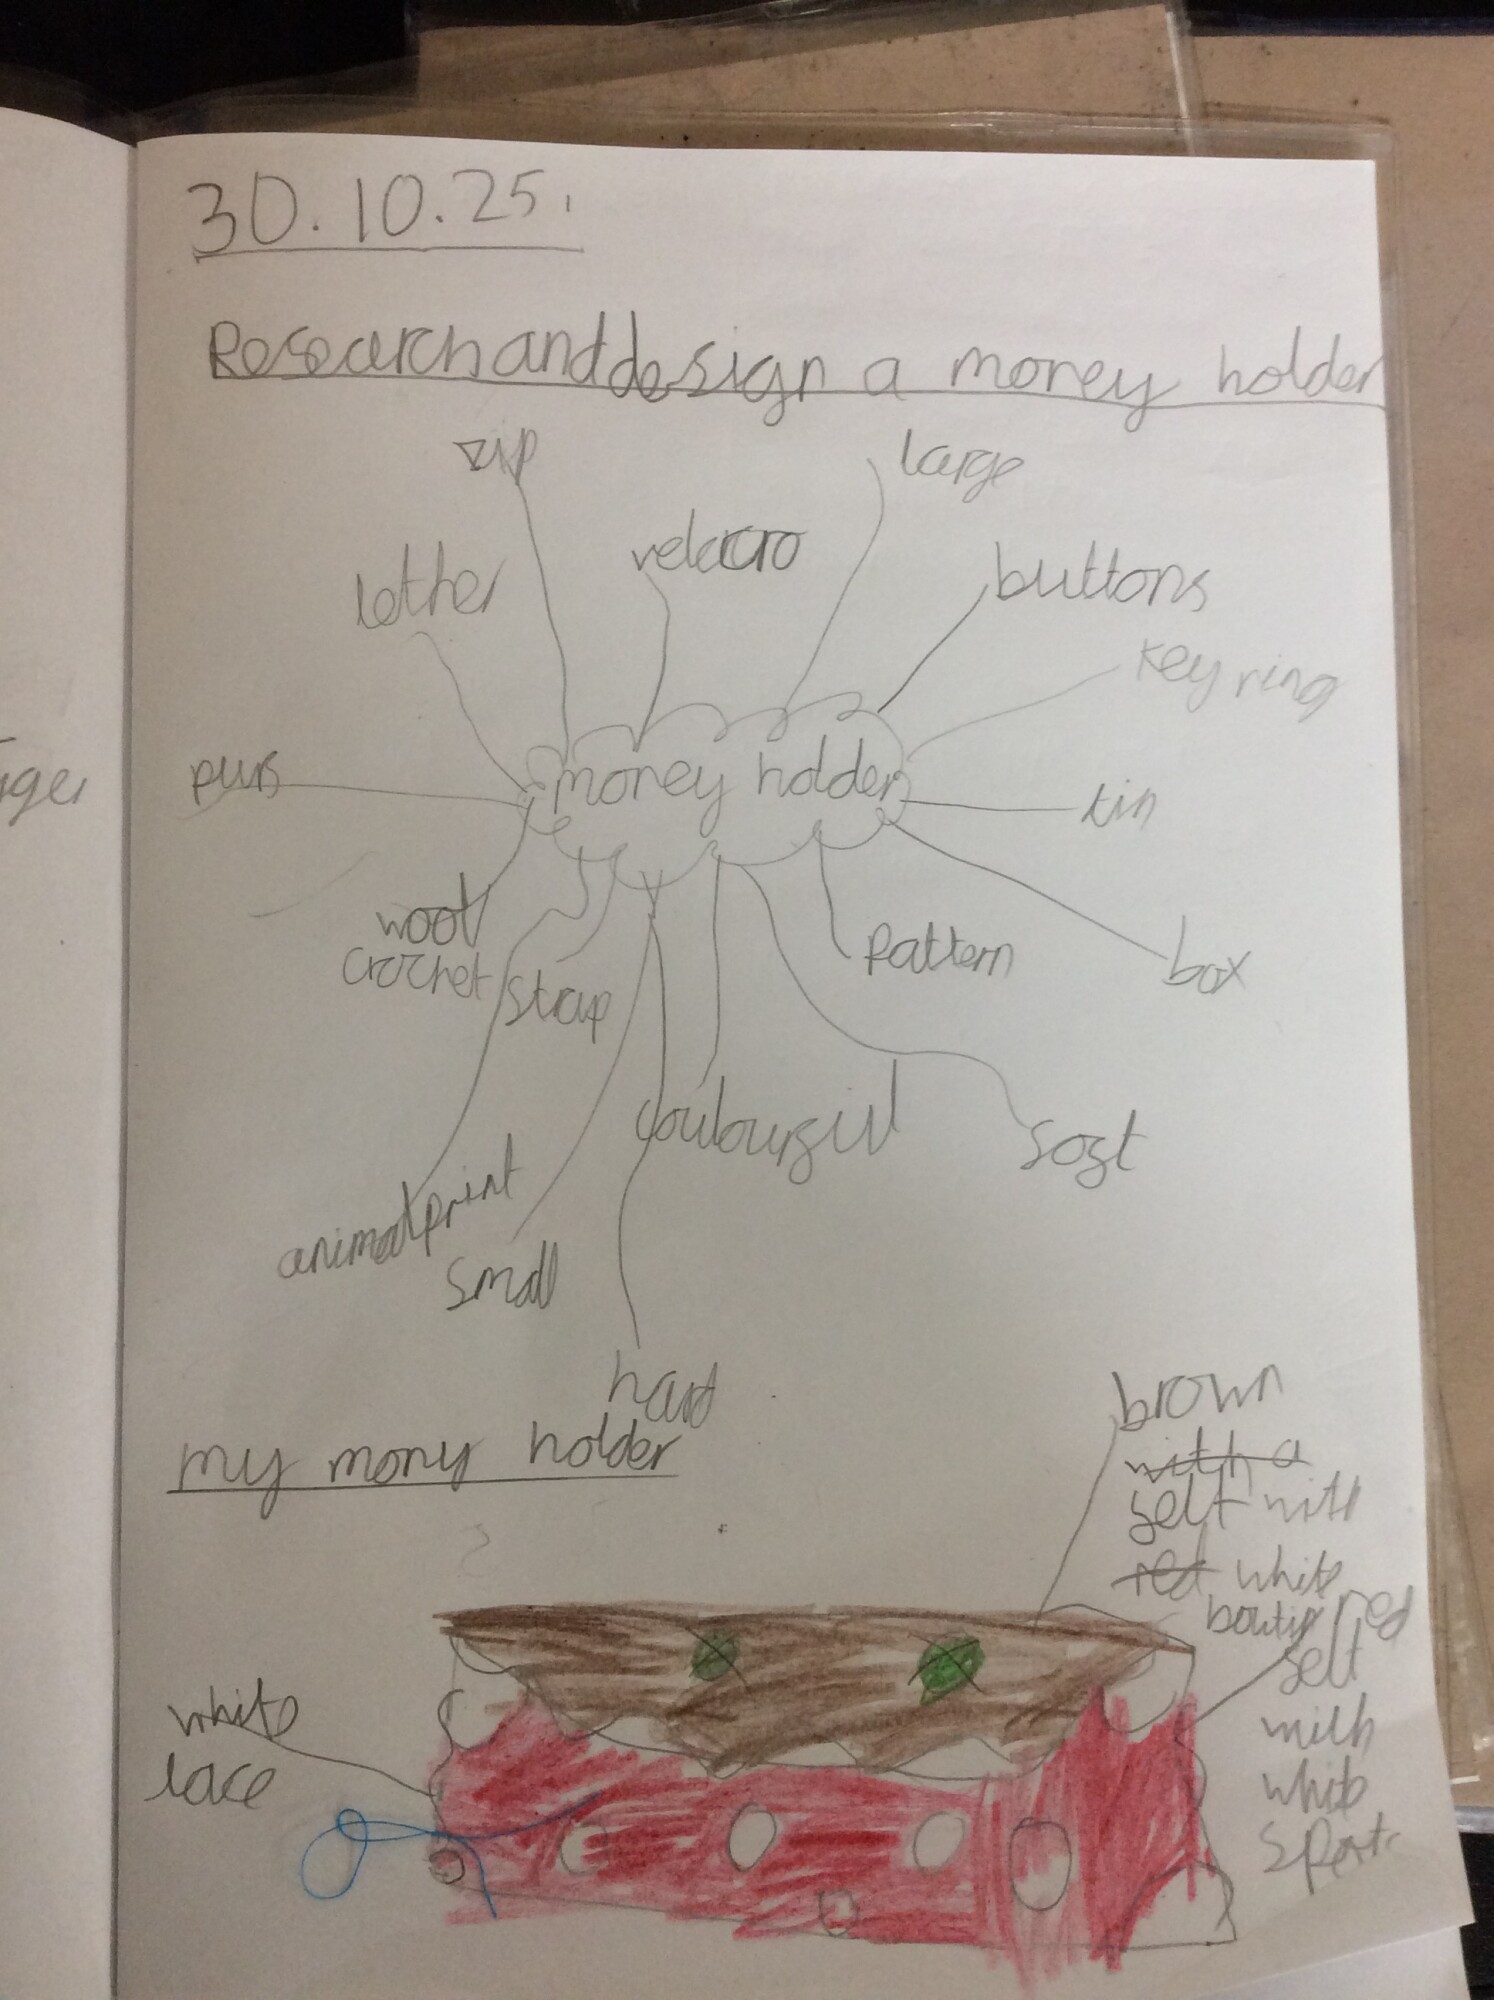 30.10.25.
Research and design a money holder
zip
large
velcro
lether
buttons
key ring
purs
money holder
tin
wool
crochet
strap
pattern
box
coulourful
soft
animal print
small
hard
my mony holder
brown
with a
felt with
red white
red
felt
with
white
white
lace